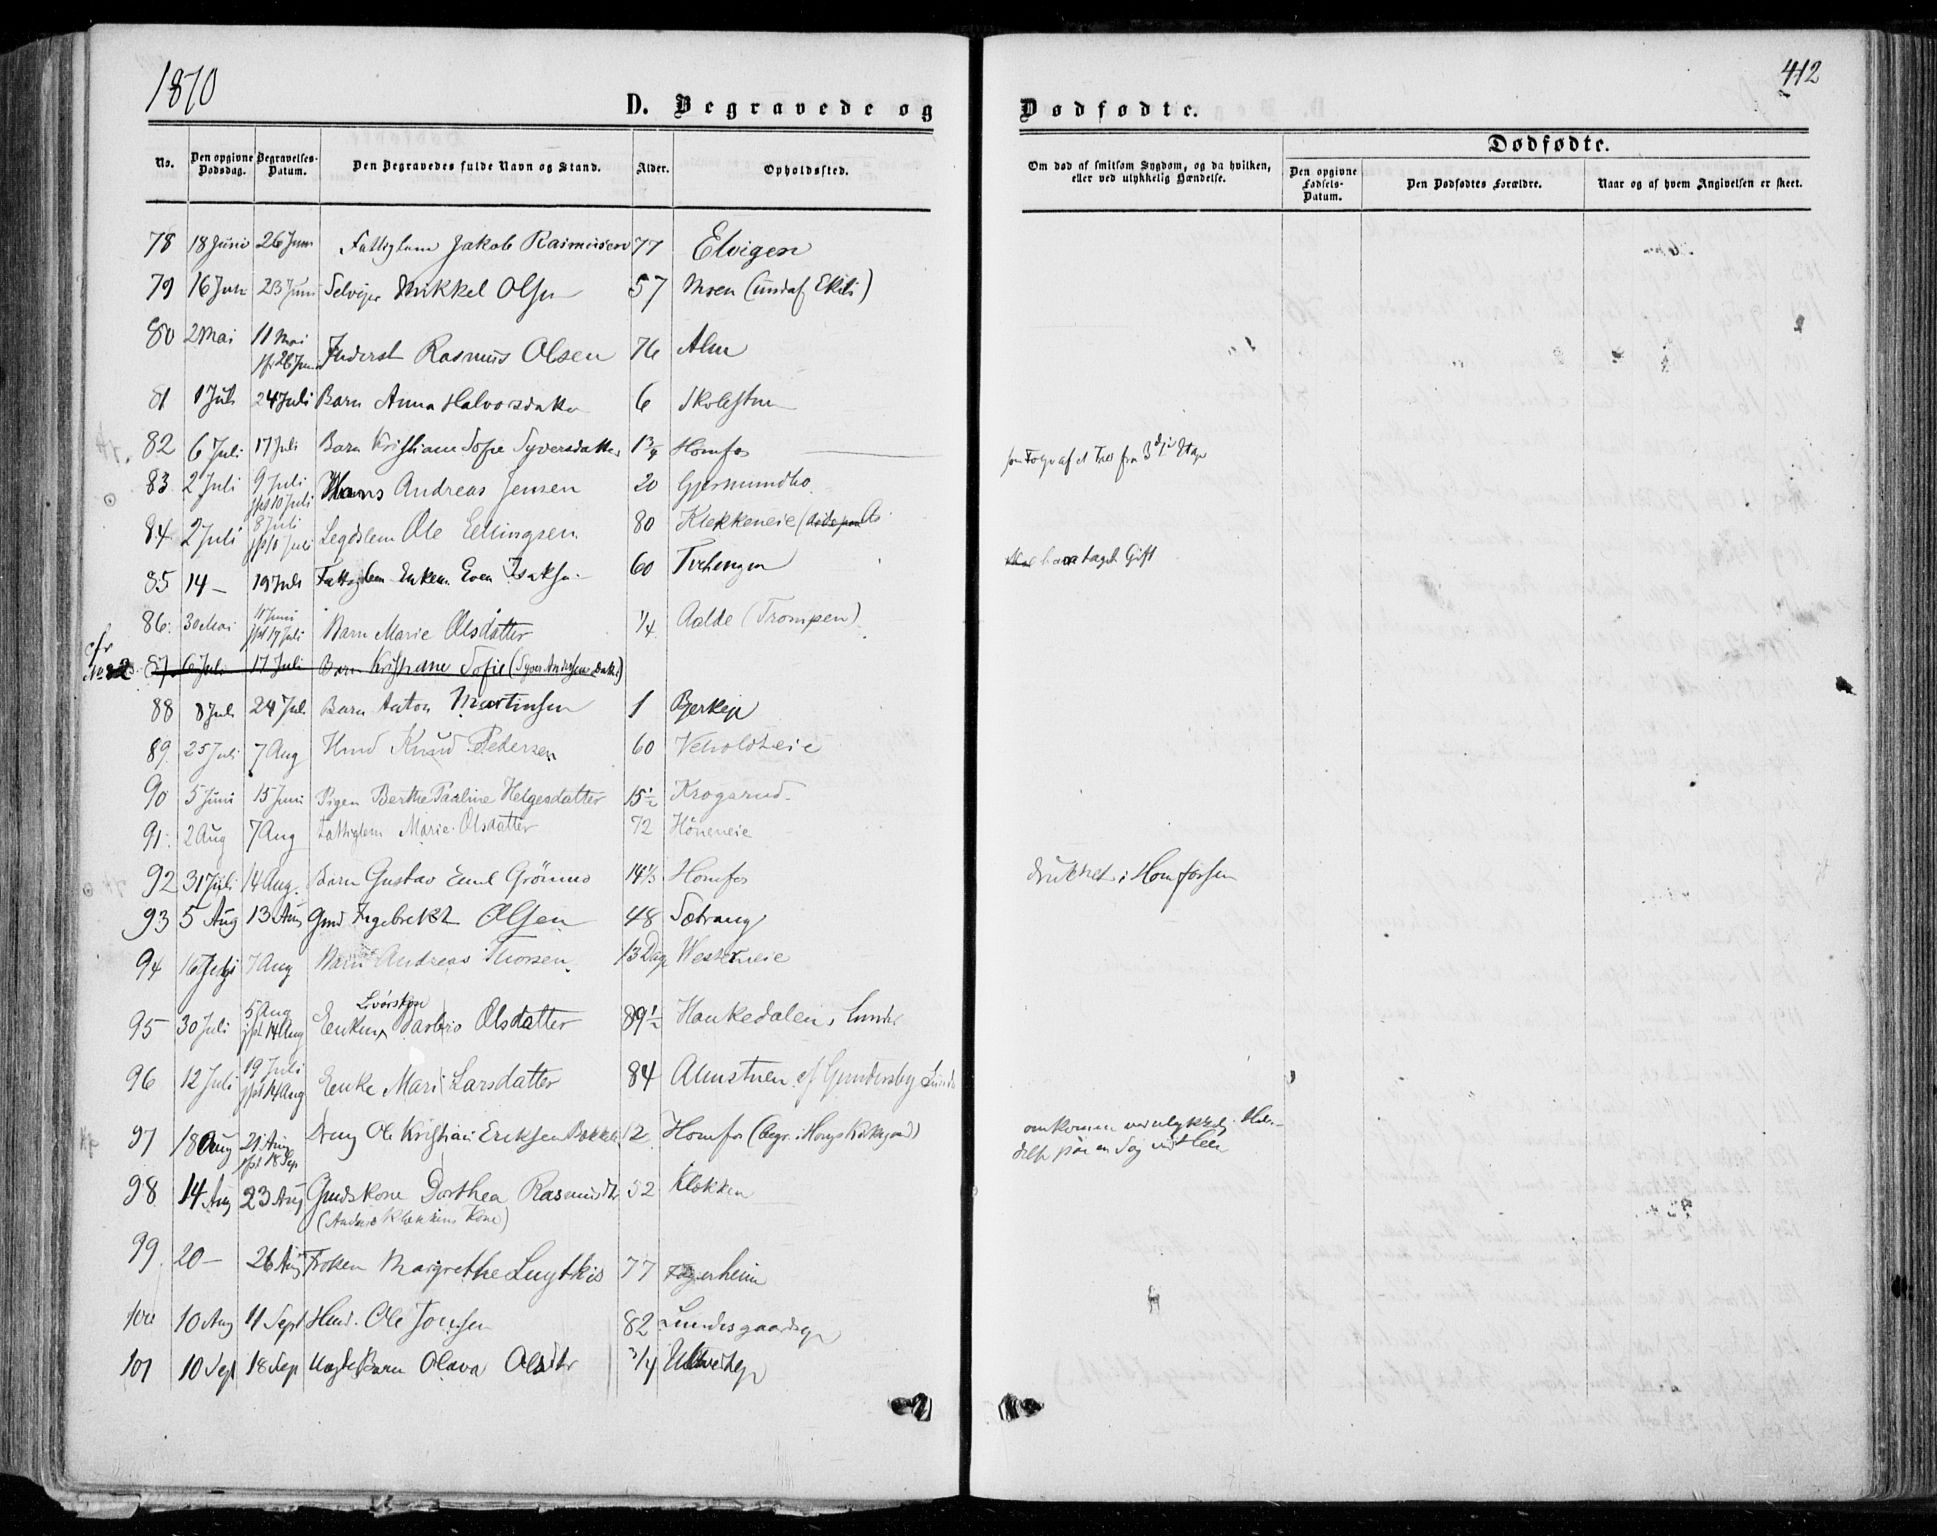 1870
412
D. Begravede og Dødfødte.
No.
Den opgivne Dødsdag.
Begravelses-Datum.
Den Begravedes fulde Navn og Stand.
Alder.
Opholdssted.
Om død af smitsom Sygdom, og da hvilken, eller ved ulykkelig Hændelse.
Dødfødte.
Den opgivne Fødsels-Datum.
Den Dødfødtes Forældre.
Naar og af hvem Angivelsen er skeet.
78 18 Juni 26 Juni Fattiglem Jakob Rasmussen 77 Elvigen
79 16 Jun 23 Juni Selveier Mikkel Olsen 57 Moen
80 2 Mai 11 Mai jfr 26 Jun Inderst Rasmus Olsen 76 Alm
81 1 Juli 24 Juli Barn Anna Halvorsdatter 6 Skolestuen
82 6 Juli 17 Juli Barn Kristiane Sofie Syversdatter 1¾ Honfos
83 2 Juli 9 Juli jfst 10 Juli Hans Andreas Jensen 20 Gjermundbo
84 2 Juli 8 Juli Legdslem Ole Ellingsen 80 Klekkeneie
85 14 — 19 Juli Fattiglem Enkem. Even Isaksen 60
taget Gift
86. 30 Mai 11 Juni jfst 17 Juli Barn Marie Olsdatter ¼ Aalde (Trompen)
cfr No 82 87. 6 Juli 17 Juli Barn Kristiane Sofie (Syver Andersens Datter)
88 8 Juli 24 Juli Barn Anton Martinsen 1 Bjerkeje
89. 25 Juli 7 Aug Hmd Knud Pedersen 60
90 5 Juni 15 Juni Pigen Berthe Pauline Helgesdatter 15½ Krogsrud
91. 2 Aug 7 Aug Fattiglem Marie Olsdatter 72 Höneneie
92 31 Juli 14 Aug. Barn Gustav Emil Grönnes 14⅓ Honfos
druknet i Honfossen
93 5 Aug 13 Aug Gmd Ingebrekt Olsen 48 Sætrang
94 16 Juli 7 Aug Barn Andreas Thorsen 13 Dage Westerneie
95 30 Juli 5 Aug jfst 14 Aug Enken Barbro Olsdatter 89½ Haukedalen, Lunder
96 12 Juli 19 Juli jfst 14 Aug Enke Mari Larsdatter 84 Almstuen ef Gundersby Lunder
97 18 Aug 21 Aug jfst 18 Sep Dreng Ole Kristian Eriksen 12 Honfos (begr. i Hougs Kirkegaard)
omkommen ved ulykkelig Hændelse paa en Sag ved Heen
98 14 Aug 23 Aug Gmdskone Dorthea Rasmusdtr 52 Klækken
(Anders Klækkens Kone)
99. 20 — 26 Aug Frøken Margrethe Luytkis 77 Fagerheim
100 10 Aug 11 Sept Hmd. Ole Jonsen 82 Lundesgaardseje
101 10 Sept 18 Sep Uægte Barn Olava Olsdtr ¾